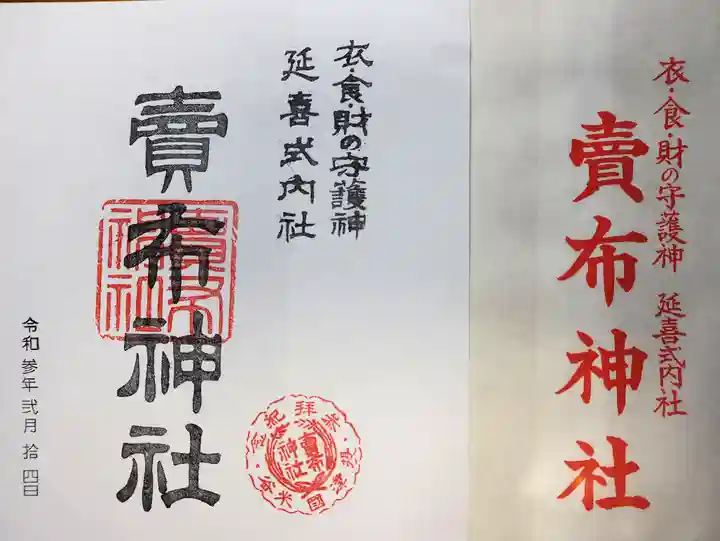 衣・食・財の守護神
延喜式内社
賣布神社
賣布神社
令和参年弐月拾四日
参拝紀念
摂津國米谷
賣布神社
衣・食・財の守護神 延喜式内社
賣布神社